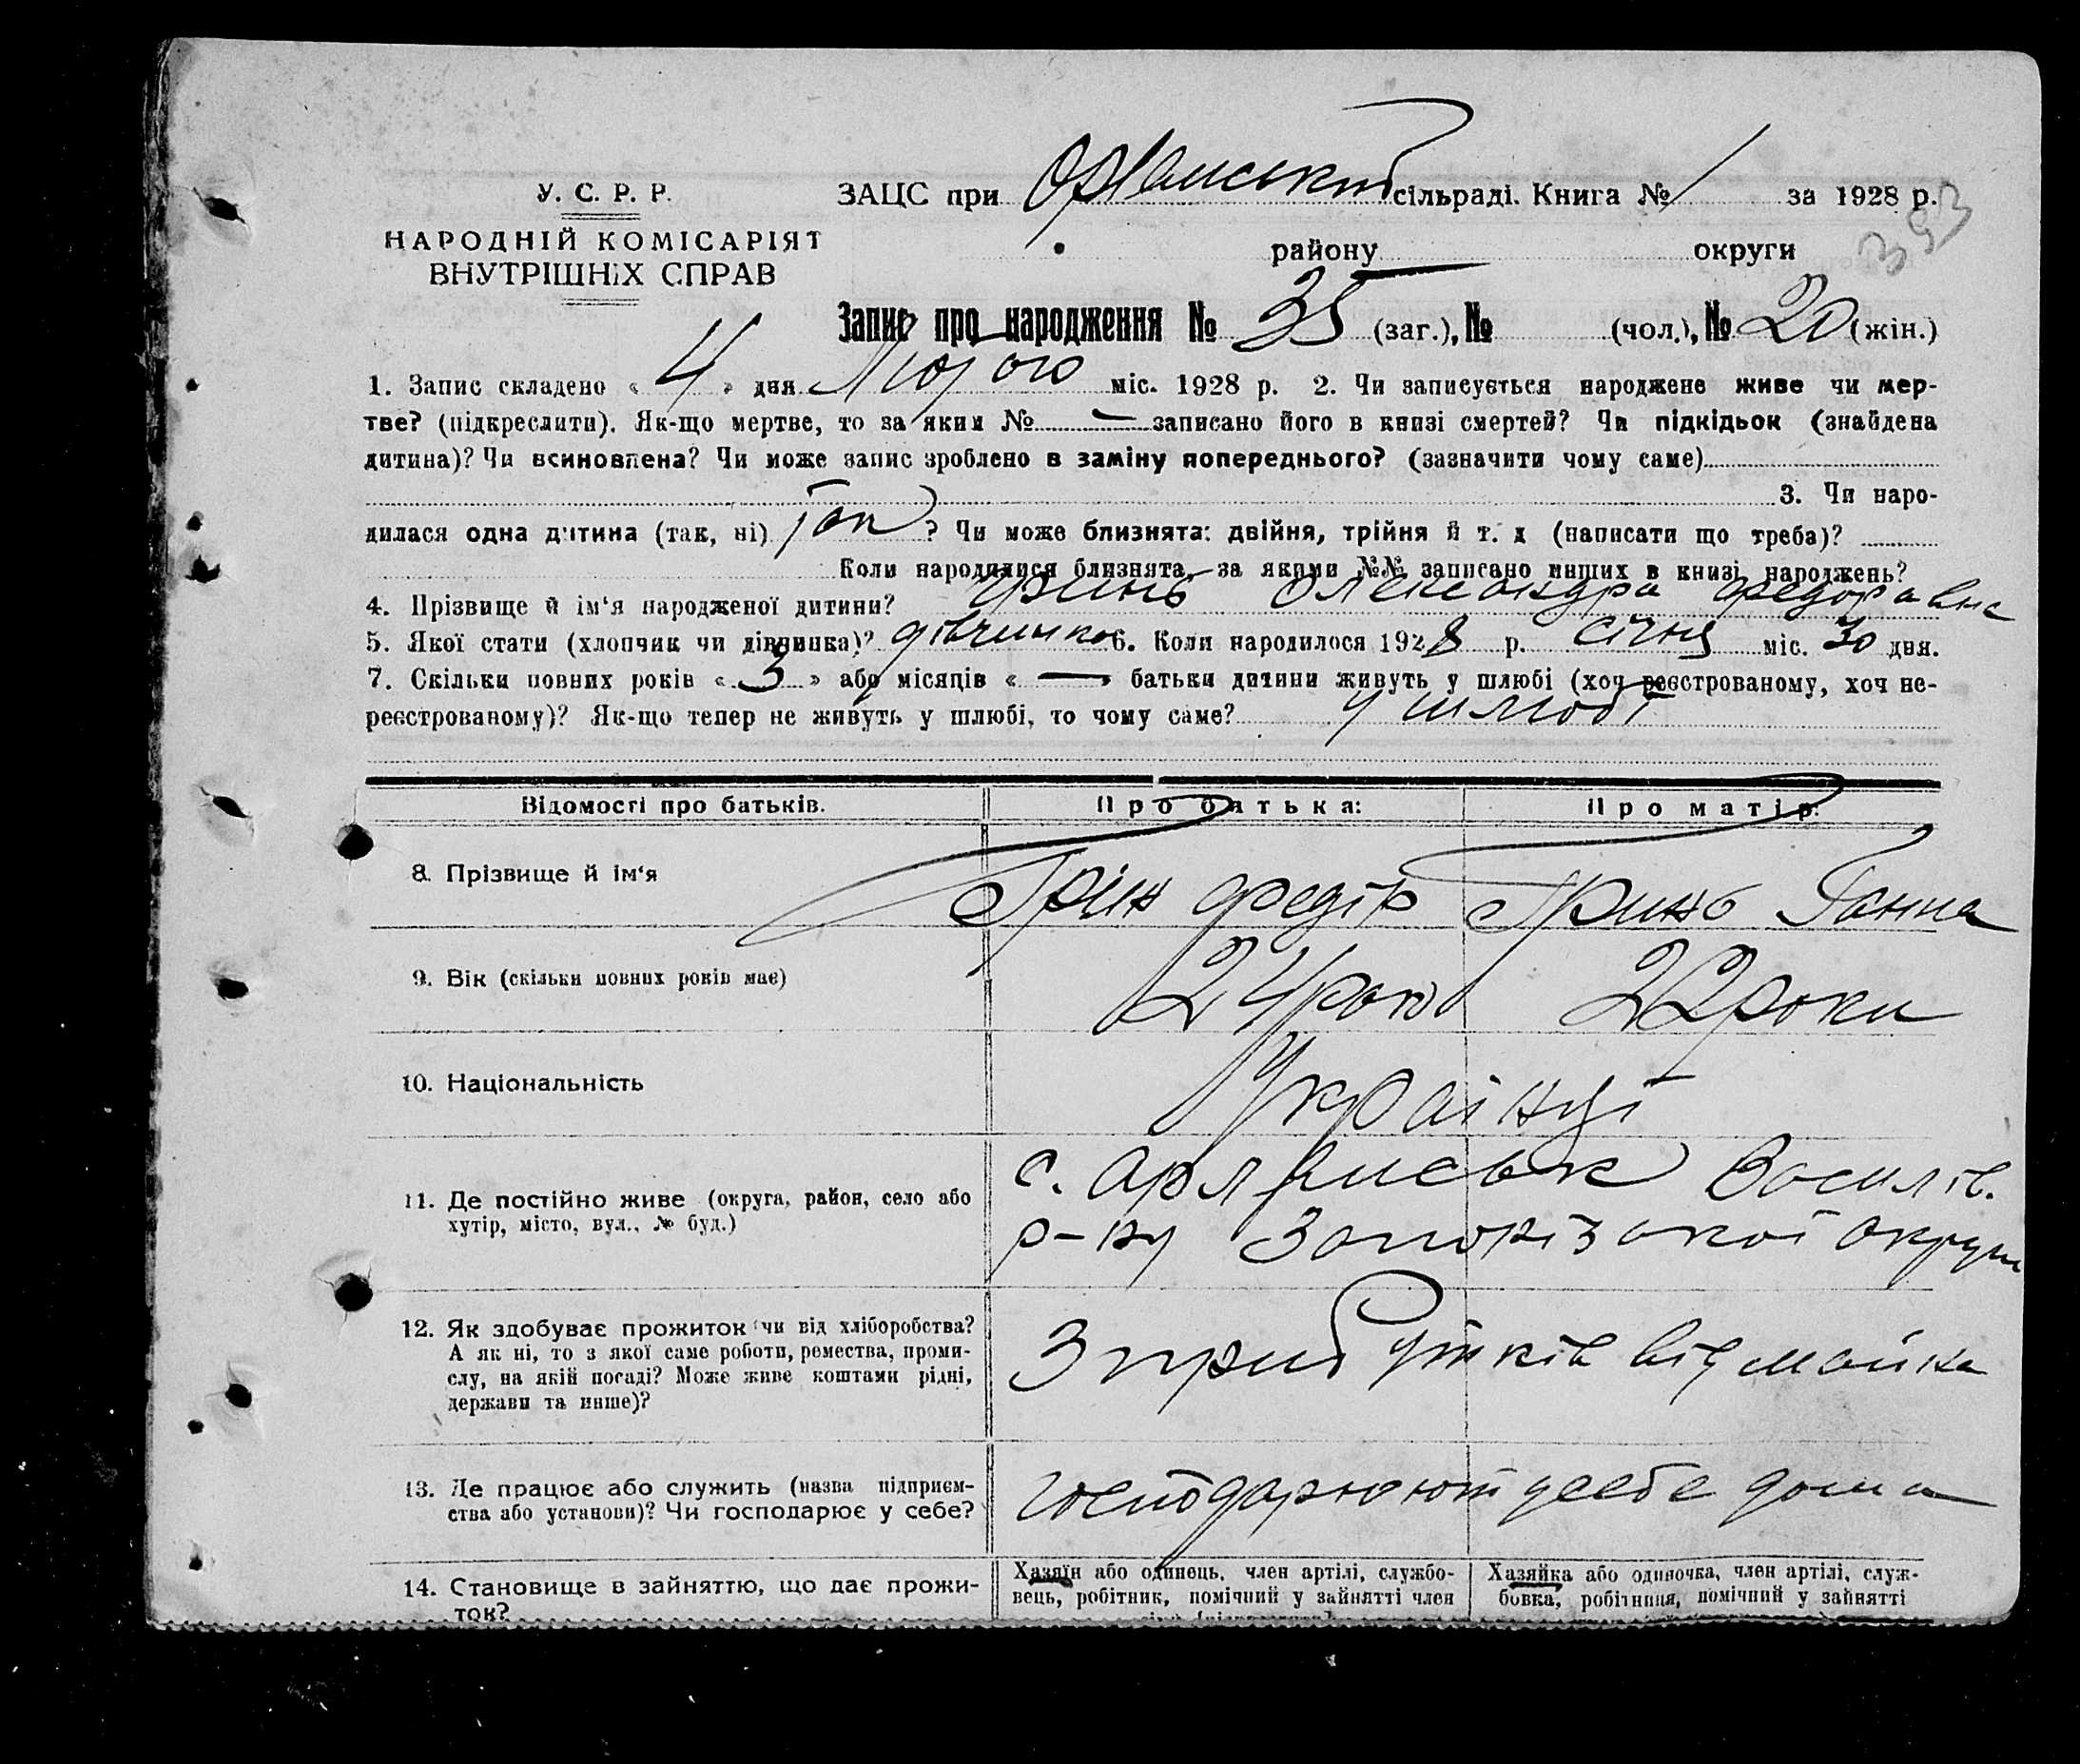 У. С. Р. Р.
НАРОДНІЙ КОМІСАРІЯТ
ВНУТРІШНІХ СПРАВ
ЗАЦС при Орлянський сільраді. Книга № 1 за 1928 р.
393
району округи
Запис про народження № 35 (заг.), № (чол.), № 20 (жін.)
1. Запис складено « 4 » дня Лютого міс. 1928 р. 2. Чи записується народжене живе чи мер-
тве? (підкреслити). Як-що мертве, то за яким № — записано його в книзі смертей? Чи підкідьок (знайдена
дитина)? Чи всиновлена? Чи може запис зроблено в заміну попереднього? (зазначити чому саме)
3. Чи наро-
дилася одна дитина (так, ні) так ? Чи може близнята: двійня, трійня й т. д (написати що треба)?
Коли народилися близнята, за якими №№ записано инших в книзі народжень?
4. Прізвище й ім'я народженої дитини? Гринь Олександра Федоравна
5. Якої стати (хлопчик чи дівчинка)? дівчинка 6. Коли народилося 1928 р. січня міс. 30 дня.
7. Скільки повних років « 3 » або місяців « — » батьки дитини живуть у шлюбі (хоч реєстрованому, хоч не-
реєстрованому)? Як-що тепер не живуть у шлюбі, то чому саме? у шлюбі
Відомості про батьків. Про батька: Про матір:
8. Прізвище й ім'я Грін Федір Гринь Ганна
9. Вік (скільки повних років має) 24 роки 22 роки
10. Національність Українці
11. Де постійно живе (округа, район, село або
хутір, місто, вул., № буд.)
с. Орлянськ Василів.
р-ну Запорізької округи
12. Як здобуває прожиток чи від хліборобства?
А як ні, то з якої саме роботи, ремества, проми-
слу, на якій посаді? Може живе коштами рідні,
держави та инше)?
З прибутків від майна
13. Де працює або служить (назва підприєм-
ства або установи)? Чи господарює у себе?
господарюють у себе дома
14. Становище в зайняттю, що дає прожи-
ток?
Хазяїн або одинець, член артілі, службо-
вець, робітник, помічний у зайнятті член
Хазяйка або одиночка, член артілі, служ-
бовка, робітниця, помічний у зайнятті